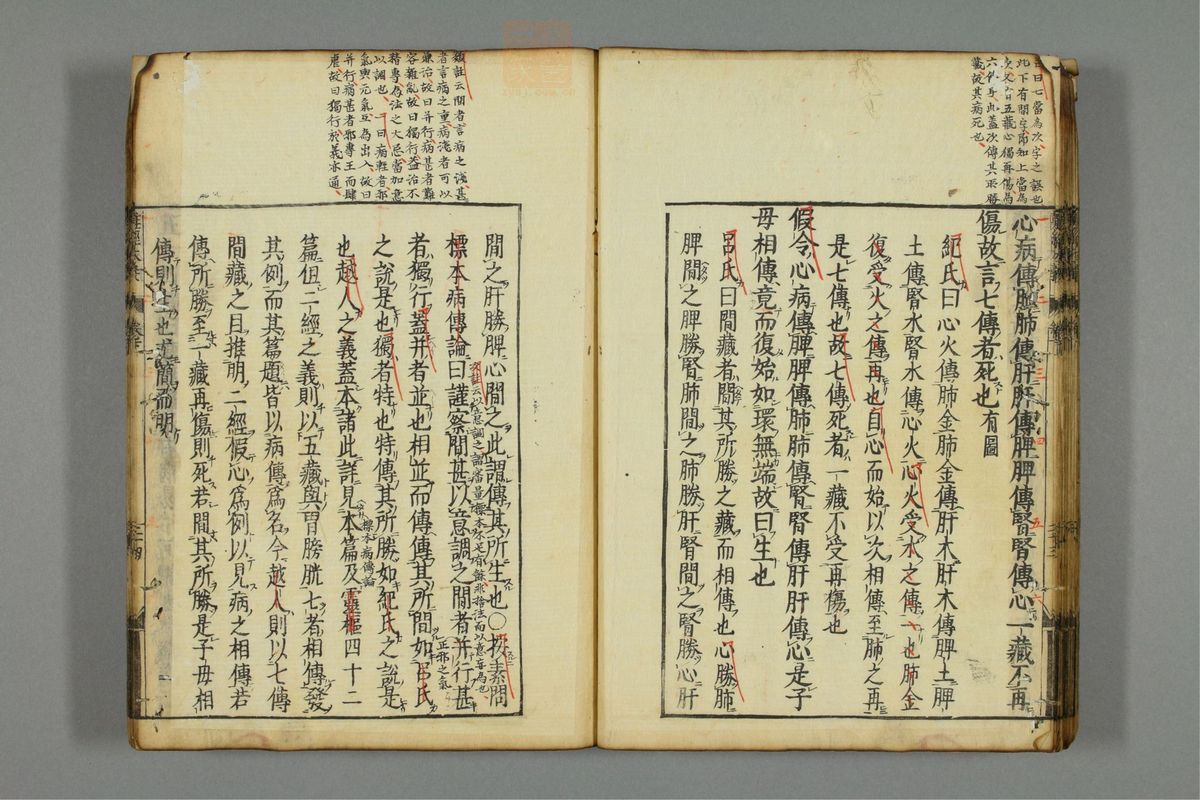 曰七當為次字之誤也
此下有間字即知上當為
次又有五藏心獨再傷為
六傳耳此蓋次傳其所勝
藏故其病死也
心病傳肺肺傳肝肝傳脾脾傳腎腎傳心一藏不再
傷故言七傳者死也有圖
紀氏曰心火傳肺金肺金傳肝木肝木傳脾土脾
土傳腎水腎水傳心火心火受水之傳一也肺金
復受火之傳再也自心而始以次相傳至肺之再
是七傳也故七傳死者一藏不受再傷也
假令心病傳脾脾傳肺肺傳腎腎傳肝肝傳心是子
母相傳竟而復始如環無端故曰生也
呂氏曰間藏者間其所勝之藏而相傳也心勝肺
脾間之脾勝腎肺間之肺勝肝腎間之腎勝心肝
類註云間者言病之淺甚
者言病之重病淺者可以
兼治故曰并行病甚者難
容雜亂故曰獨行蓋治不
精專為法之大忌當加意
以調也一曰病輕者邪
氣與元氣互為出入故曰
并行病甚者邪專王而肆
虐故曰獨行於義亦通
間之肝勝脾心間之此謂傳其所生也○按素問
標本病傳論曰謹察間甚以意調之間者并行甚
者獨行蓋并者並也相並而傳傳其所間如呂氏
之說是也獨者特也特傳其所勝如紀氏之說是
標本病傳論
也越人之義蓋本諸此詳見本篇及靈樞四十二
篇但二經之義則以五藏與胃膀胱七者相傳發
其例而其篇題皆以病傳為名今越人則以七傳
間藏之目推明二經假心為例以見病之相傳若
傳所勝至一藏再傷則死若間其所勝是子母相
傳則生也尤簡而明